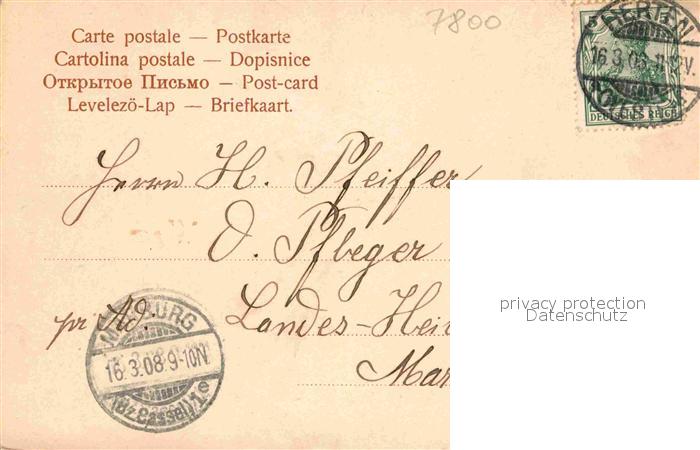 7800
Carte postale — Postkarte
Cartolina postale — Dopisnice
Открытое Письмо — Post-card
Levelező-Lap — Briefkaart.
5
16.3.08
DEUTSCHES REICH
Herrn H. Pfeiffer
O. Pfleger
pr Ad. Landes-Hei
Mar
MARBURG
16.3.08.9-10N.
(Bz. Cassel) 1
privacy protection
Datenschutz